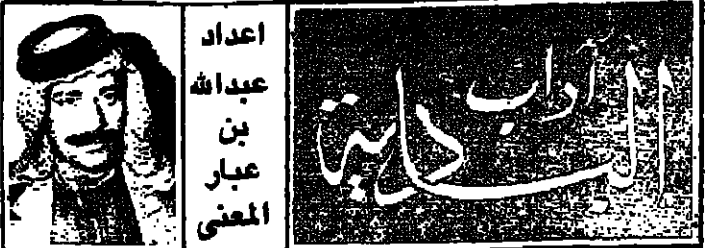 آداب
البادية
اعداد
عبدالله
بن
عبار
المعنى